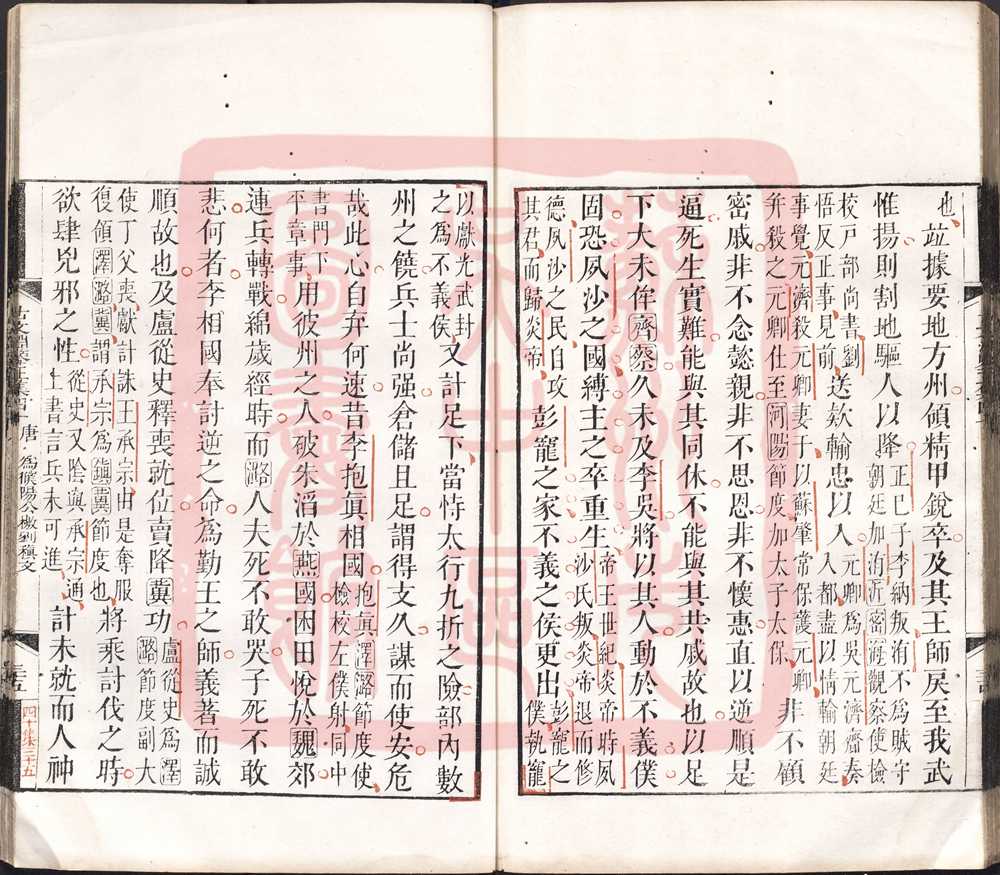 也 竝據要地方州傾精甲銳卒及其王師戾至我武
惟揚則割地驅人以降 正巳子李納叛洧不為賊守 朝廷加洧沂密海觀察使檢
校戸部尚書劉 悟反正事見前 送欵輸忠以入 元卿為吳元濟齎奏 入都盡以情輸朝廷
事覺元濟殺元卿妻子以蘇肇常保護元卿 并殺之元卿仕至河陽節度加太子太保 非不顧
密戚非不念懿親非不思恩非不懷惠直以逆順是
逼死生實難能與其同休不能與其共戚故也以足
下大未侔齊蔡久未及李吳將以其人動於不義僕
固恐夙沙之國縛主之卒重生 帝王世紀炎帝時夙 沙氏叛炎帝退而修
德夙沙之民自攻 其君而歸炎帝 彭寵之家不義之侯更出 彭寵之 僕執寵
以獻光武封 之為不義侯 又計足下當恃太行九折之險部內數
州之饒兵士尚强倉儲且足謂得支久謀而使安危
哉此心自弃何速昔李抱眞相國 抱眞澤潞節度使 檢校左僕射同中
書門下 平章事 用彼州之人破朱滔於燕國困田悅於魏郊
連兵轉戰綿歲經時而潞人夫死不敢哭子死不敢
悲何者李相國奉討逆之命為勤王之師義著而誠
順故也及盧從史釋喪就位賣降冀功 盧從史為澤 潞節度副大
使丁父喪獻計誅王承宗由是奪服 復領澤潞冀謂承宗為鎮冀節度也 將乘討伐之時
欲肆兇邪之性 從史又陰與承宗通 上書言兵未可進 計未就而人神
唐 為濮陽公檄劉稹文
四十集三十五